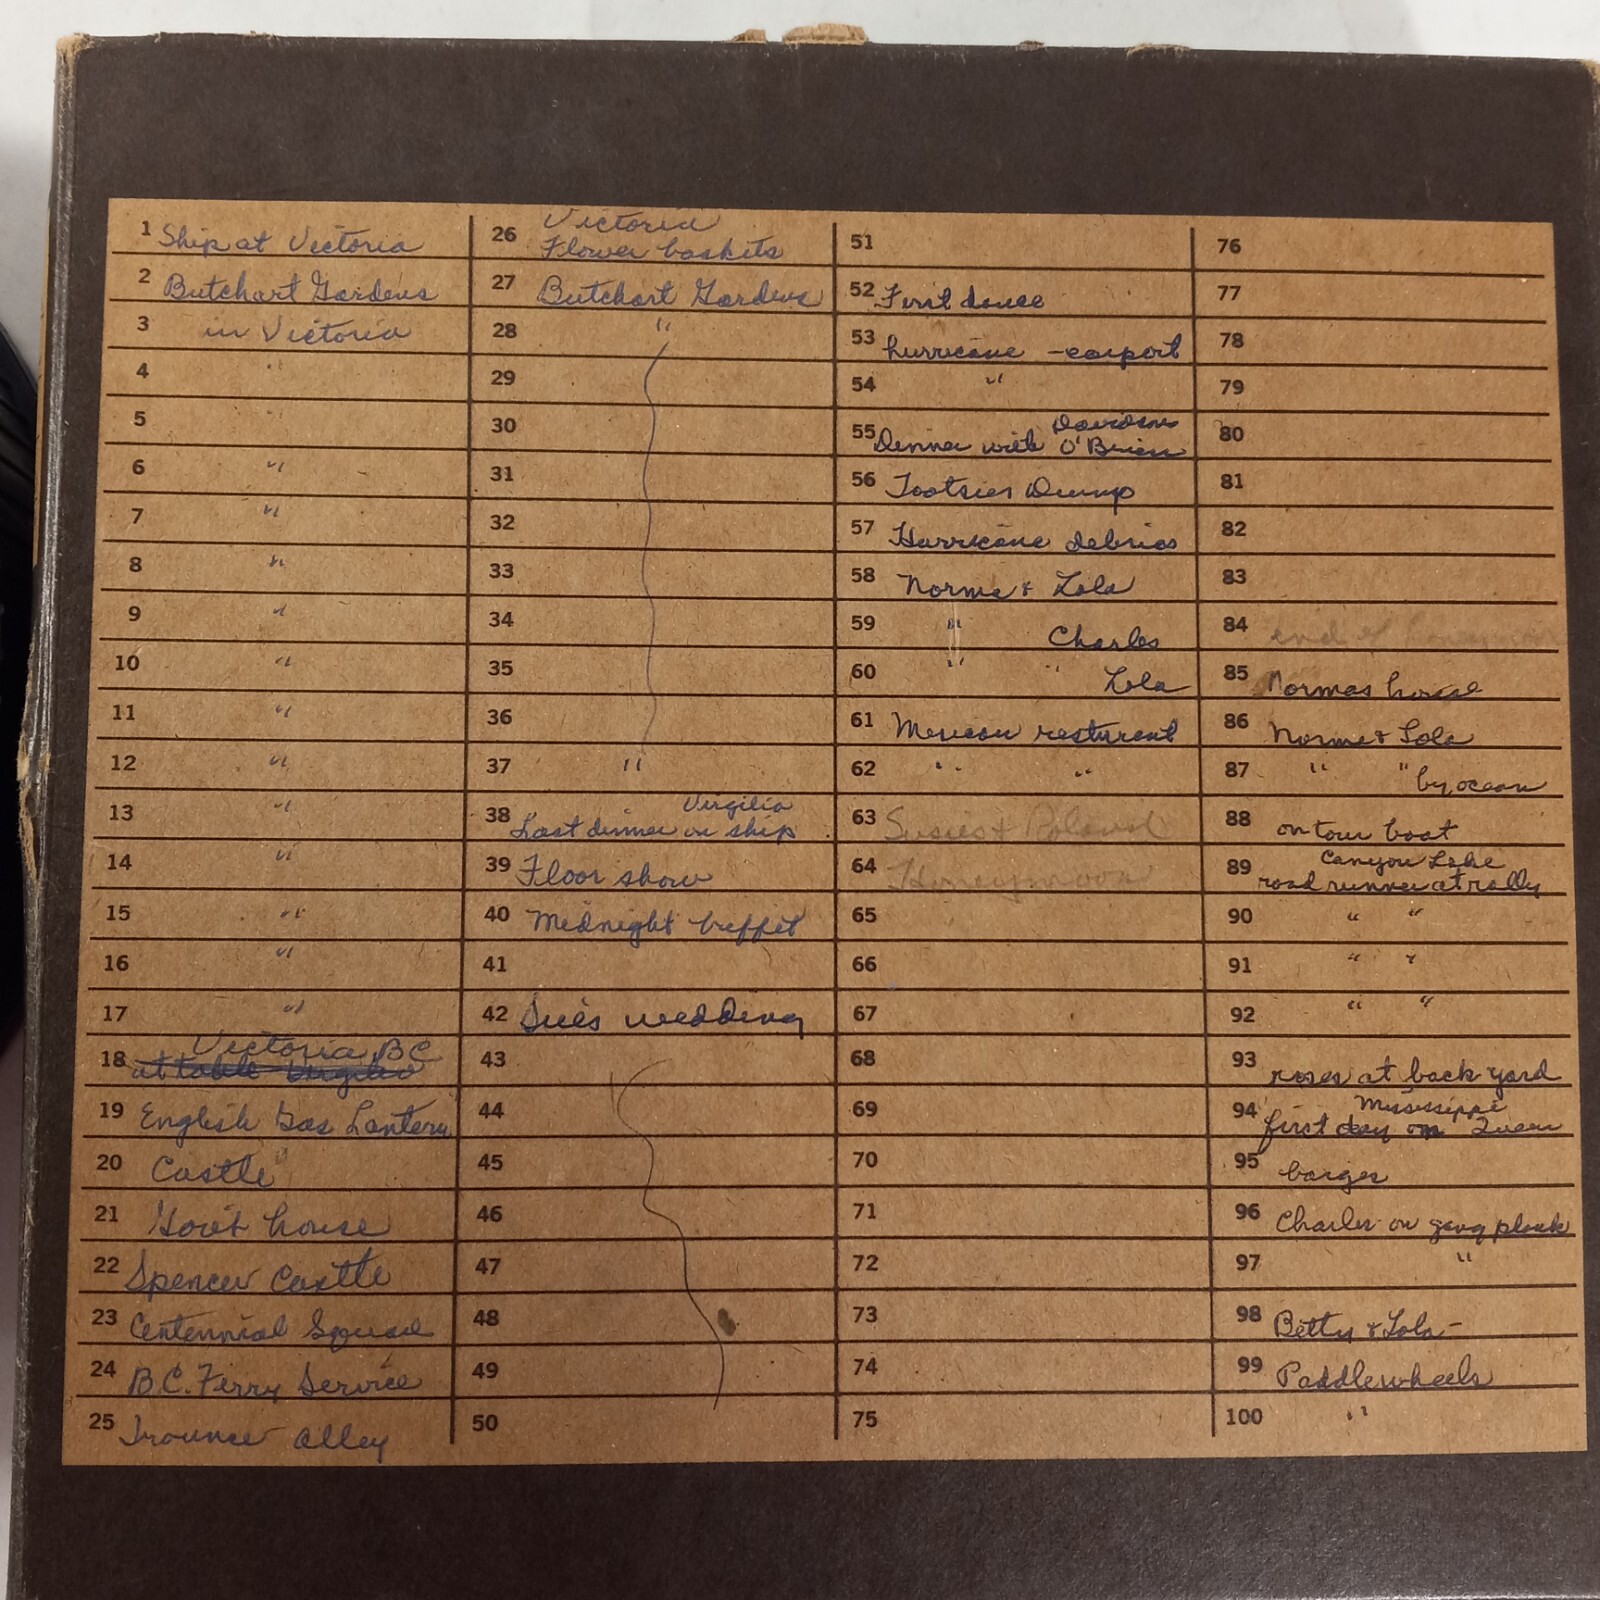 1 Ship at Victoria
2 Butchart Gardens
3 in Victoria
4 "
5 "
6 "
7 "
8 "
9 "
10 "
11 "
12 "
13 "
14 "
15 "
16 "
17 "
Victoria BC
18 at table Virgilio
19 English Gas Lantern
20 Castle
21 Gov't house
22 Spencer Castle
23 Centennial Squad
24 B.C. Ferry Service
25 Trounce Alley
Victoria
26 Flower baskets
27 Butchart Gardens
28 "
29
30
31
32
33
34
35
36
37 "
Virgilio
38 Last dinner on ship
39 Floor show
40 Midnight buffit
41
42 Sue's wedding
43
44
45
46
47
48
49
50
51
52 First dance
53 hurricane - carport
54 "
Davidson
55 Dinner with O'Brien
56 Tootsies Dump
57 Hurricane debrios
58 Norma & Lola
59 " Charles
60 " " Lola
61 Mexican resturent
62 " "
63 Susies & Roland
64 Honeymoon
65
66
67
68
69
70
71
72
73
74
75
76
77
78
79
80
81
82
83
84 end of
85 Normas house
86 Norma & Lola
87 " " by ocean
88 on tour boat
Canyon Lake
89 road runner at rally
90 " "
91 " "
92 " "
93 roses at back yard
Mississippi
94 first day on Queen
95 barges
96 Charles on gang plank
97 "
98 Betty & Lola -
99 Paddlewheels
100 "